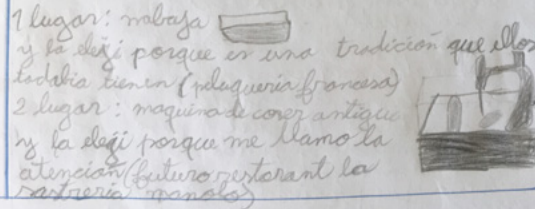 1 lugar: nabaja
y la elegi porque es una tradición que ellos
todabia tienen (peluqueria francesa)
2 lugar: maquina de coser antigua
y la elegi porque me llamo la
atención (futuro restorant la
sastreria manolo)